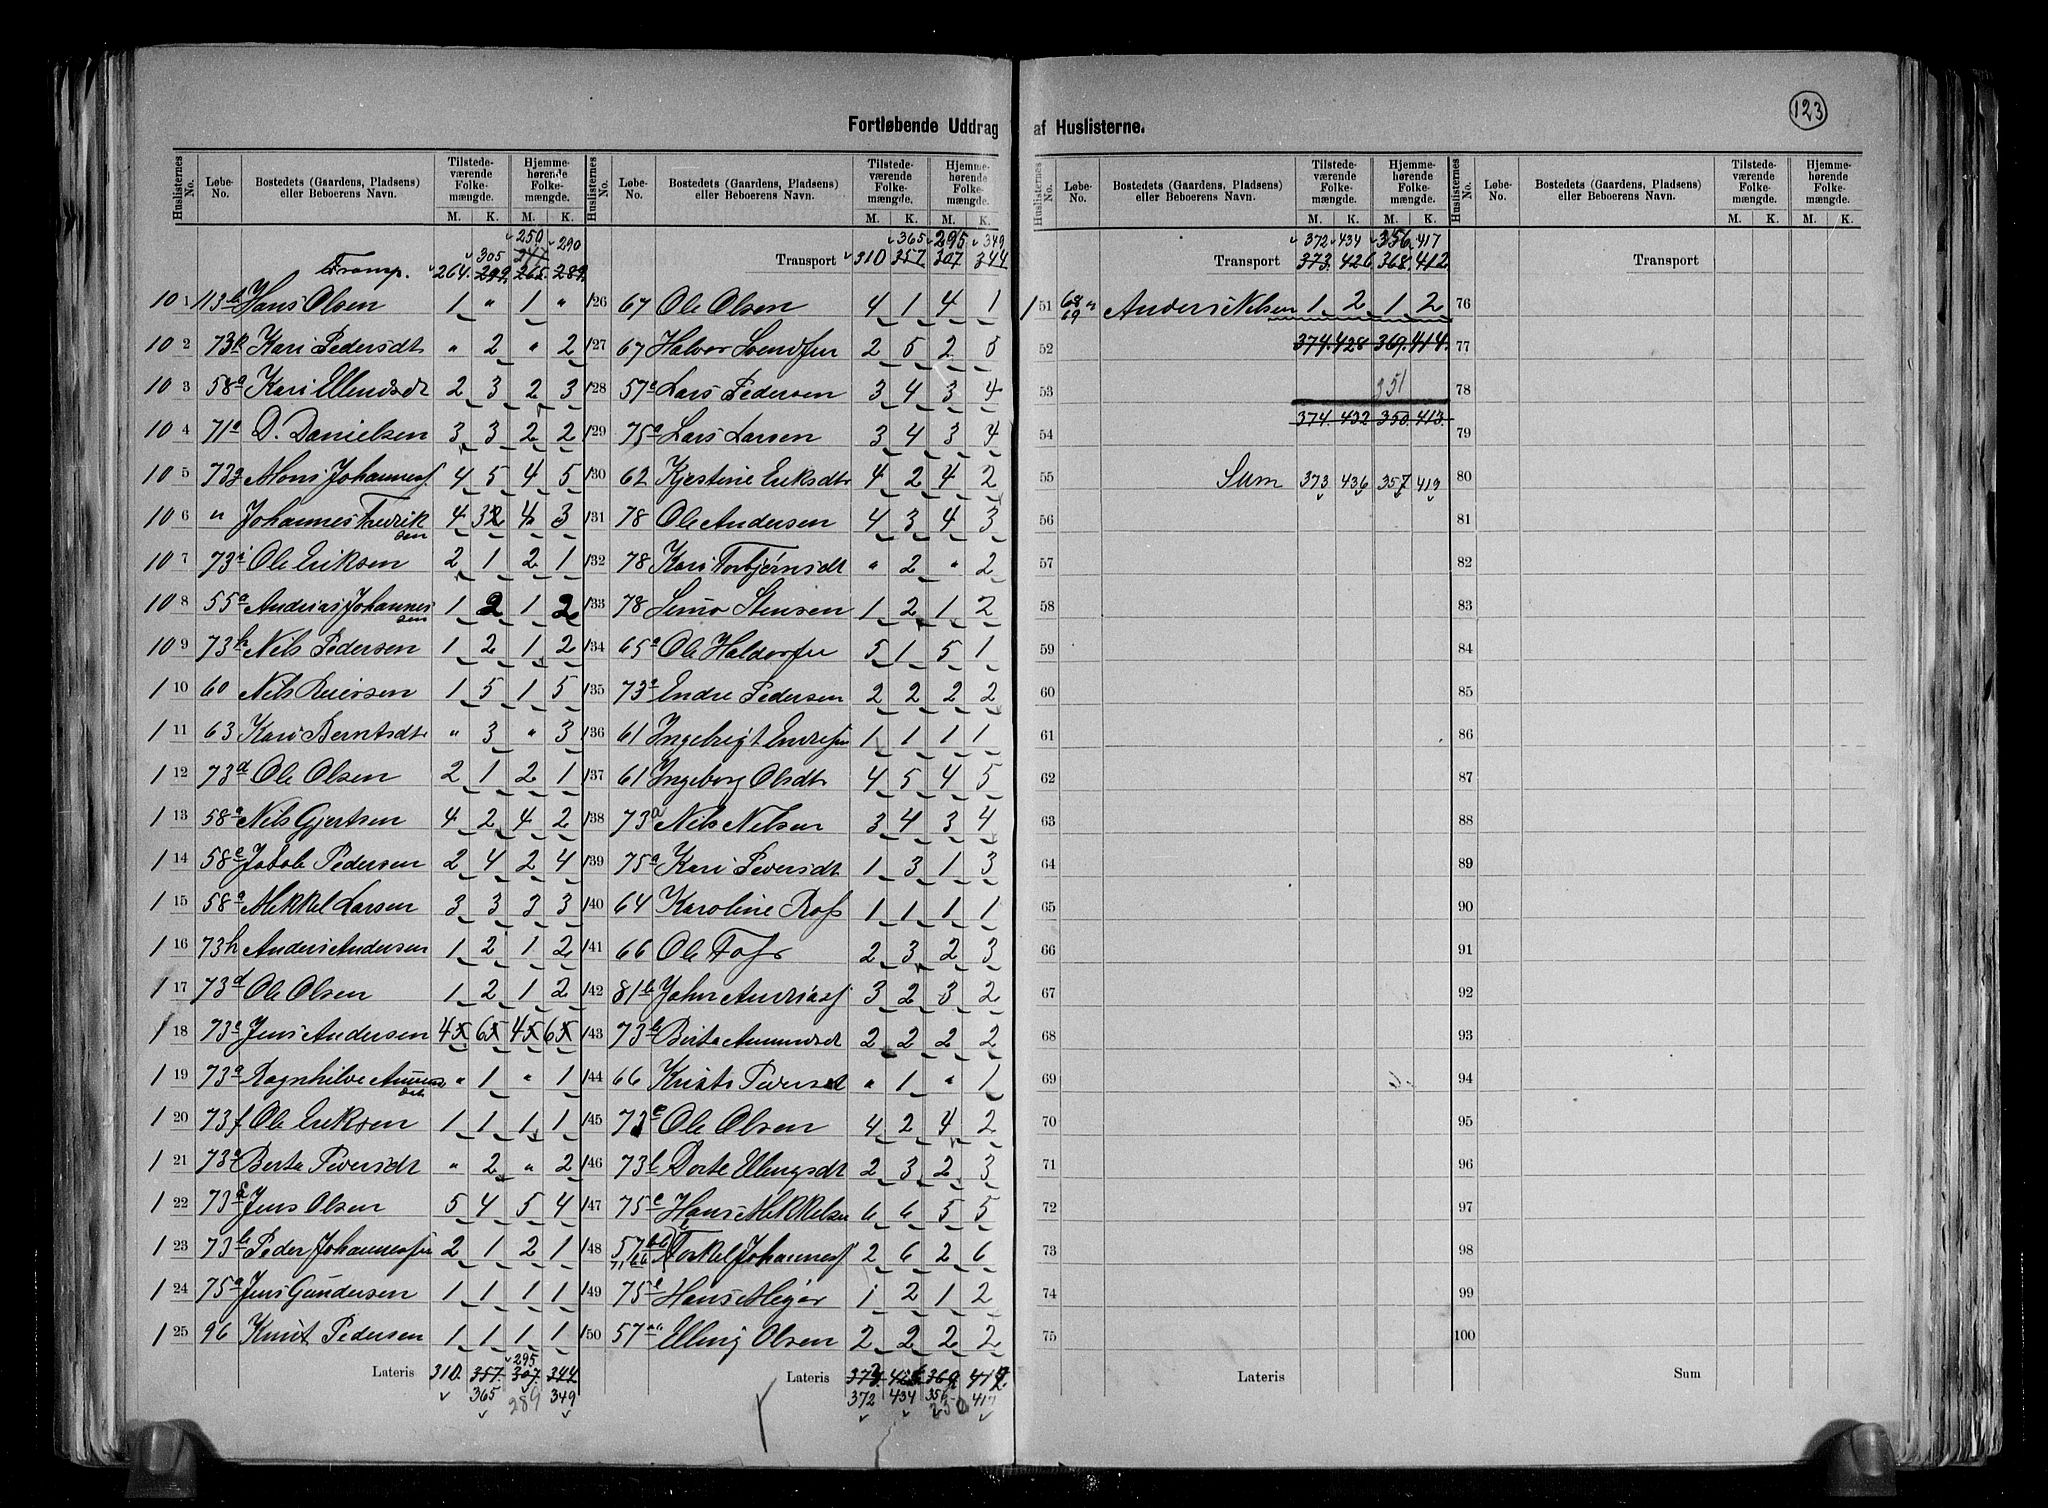 123
Fortløbende Uddrag af Huslisterne.
Huslisternes No. Løbe-No. Bostedets (Gaardens, Pladsens) eller Beboerens Navn. Tilstedeværende Folkemængde. M. K. Hjemmehørende Folkemængde. M. K.
250
305 247 290
Transp. 264. 299. 265. 289.
101 113b Hans Olsen 1 " 1 "
102 73k Kari Pedersdt " 2 " 2
103 58a Kari Ellendsdt 2 3 2 3
104 71a D. Danielsen 3 3 2 2
105 73g Mons Johannesf 4 5 4 5
106 " Johannes Fredriksen 4 32 4 3
107 73i Ole Eriksen 2 1 2 1
108 55a Andreas Johannessen 1 2 1 2
109 73h Nils Pedersen 1 2 1 2
110 60 Nils Reiersen 1 5 1 5
111 63 Kari Berntsdt " 3 " 3
112 73d Ole Olsen 2 1 2 1
113 58a Nils Gjertsen 4 2 4 2
114 58a Jakob Pedersen 2 4 2 4
115 58a Mikkel Larsen 3 3 3 3
116 73h Anders Andersen 1 2 1 2
117 73d Ole Olsen 1 2 1 2
118 73a Jens Andersen 45 65 45 65
119 73a Ragnhilde " 1 " 1
120 73f Ole Eriksen 1 1 1 1
121 73a Berta Iversdt " 2 " 2
122 73a Jens Olsen 5 4 5 4
123 73b Peder Johannessen 2 1 2 1
124 75a Jens Gundersen 1 1 1 1
125 96 Knut Pedersen 1 1 1 1
295
Lateris 310. 357. 307. 344
365 289 349
Huslisternes No. Løbe-No. Bostedets (Gaardens, Pladsens) eller Beboerens Navn. Tilstedeværende Folkemængde. M. K. Hjemmehørende Folkemængde. M. K.
365 295 349
Transport 310 357 307 344
126 67 Ole Olsen 4 1 4 1
127 67 Halvor Svendsen 2 5 2 5
128 57a Lars Pedersen 3 4 3 4
129 75a Lars Larsen 3 4 3 4
130 62 Kjestine Eriksdtr 4 2 4 2
131 78 Ole Andersen 4 3 4 3
132 78 Kari Torbjørnsdt " 2 " 2
133 78 Simo Stensen 1 2 1 2
134 65a Ole Haldorsen 5 1 5 1
135 73a Endre Pedersen 2 2 2 2
136 61 Ingebrigt Endresen 1 1 1 1
137 61 Ingeborg Olsdtr 4 5 4 5
138 73a Nils Nilsen 3 4 3 4
139 75a Kari Iversdt 1 3 1 3
140 64 Karoline Ross 1 1 1 1
141 66 Ole Foss 2 3 2 3
142 81b John Andreasf 3 2 3 2
143 73b Berta Amundsdt 2 2 2 2
144 66 Kristi Iversdt " 1 " 1
145 73e Ole Olsen 4 2 4 2
146 73l Dorte Ellingsdt 2 3 2 3
147 75c Hans Mikkelsen 6 6 5 5
148 57 71 Torkel Johannesf 2 6 2 6
149 75b Hans Meyer 1 2 1 2
150 57 Elling Olsen 2 2 2 2
Lateris 373. 426 368 412
372 434 356 417
250
Huslisternes No. Løbe-No. Bostedets (Gaardens, Pladsens) eller Beboerens Navn. Tilstedeværende Folkemængde. M. K. Hjemmehørende Folkemængde. M. K.
372 434 356 417
Transport 373. 426 368. 412
151 68 69 Anders Nilsen 1 2 1 2
52 374. 428 369. 414.
53 351
374. 432 350. 413.
54
55 Sum 373 436 357 419
56
57
58
59
60
61
62
63
64
65
66
67
68
69
70
71
72
73
74
75
Lateris
Huslisternes No. Løbe-No. Bostedets (Gaardens, Pladsens) eller Beboerens Navn. Tilstedeværende Folkemængde. M. K. Hjemmehørende Folkemængde. M. K.
Transport
76
77
78
79
80
81
82
83
84
85
86
87
88
89
90
91
92
93
94
95
96
97
98
99
100
Sum